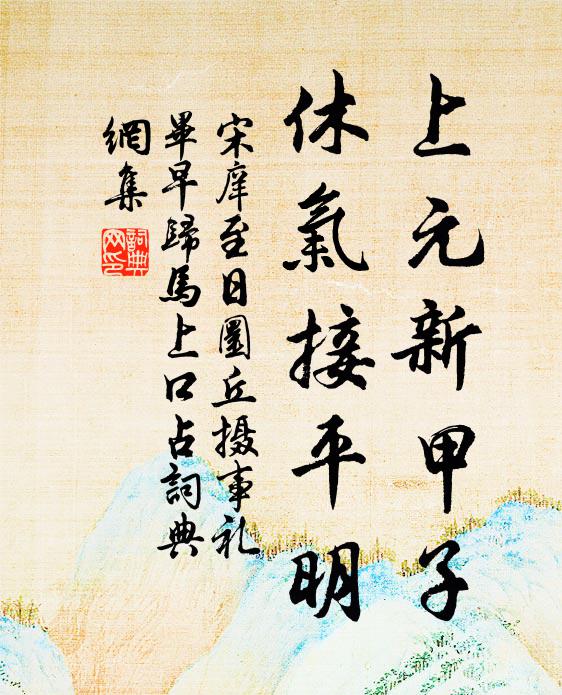 上元新甲子
休氣接平明
宋庠至日圜丘摄事礼
畢早歸馬上口占詞典
網集
詞典網印